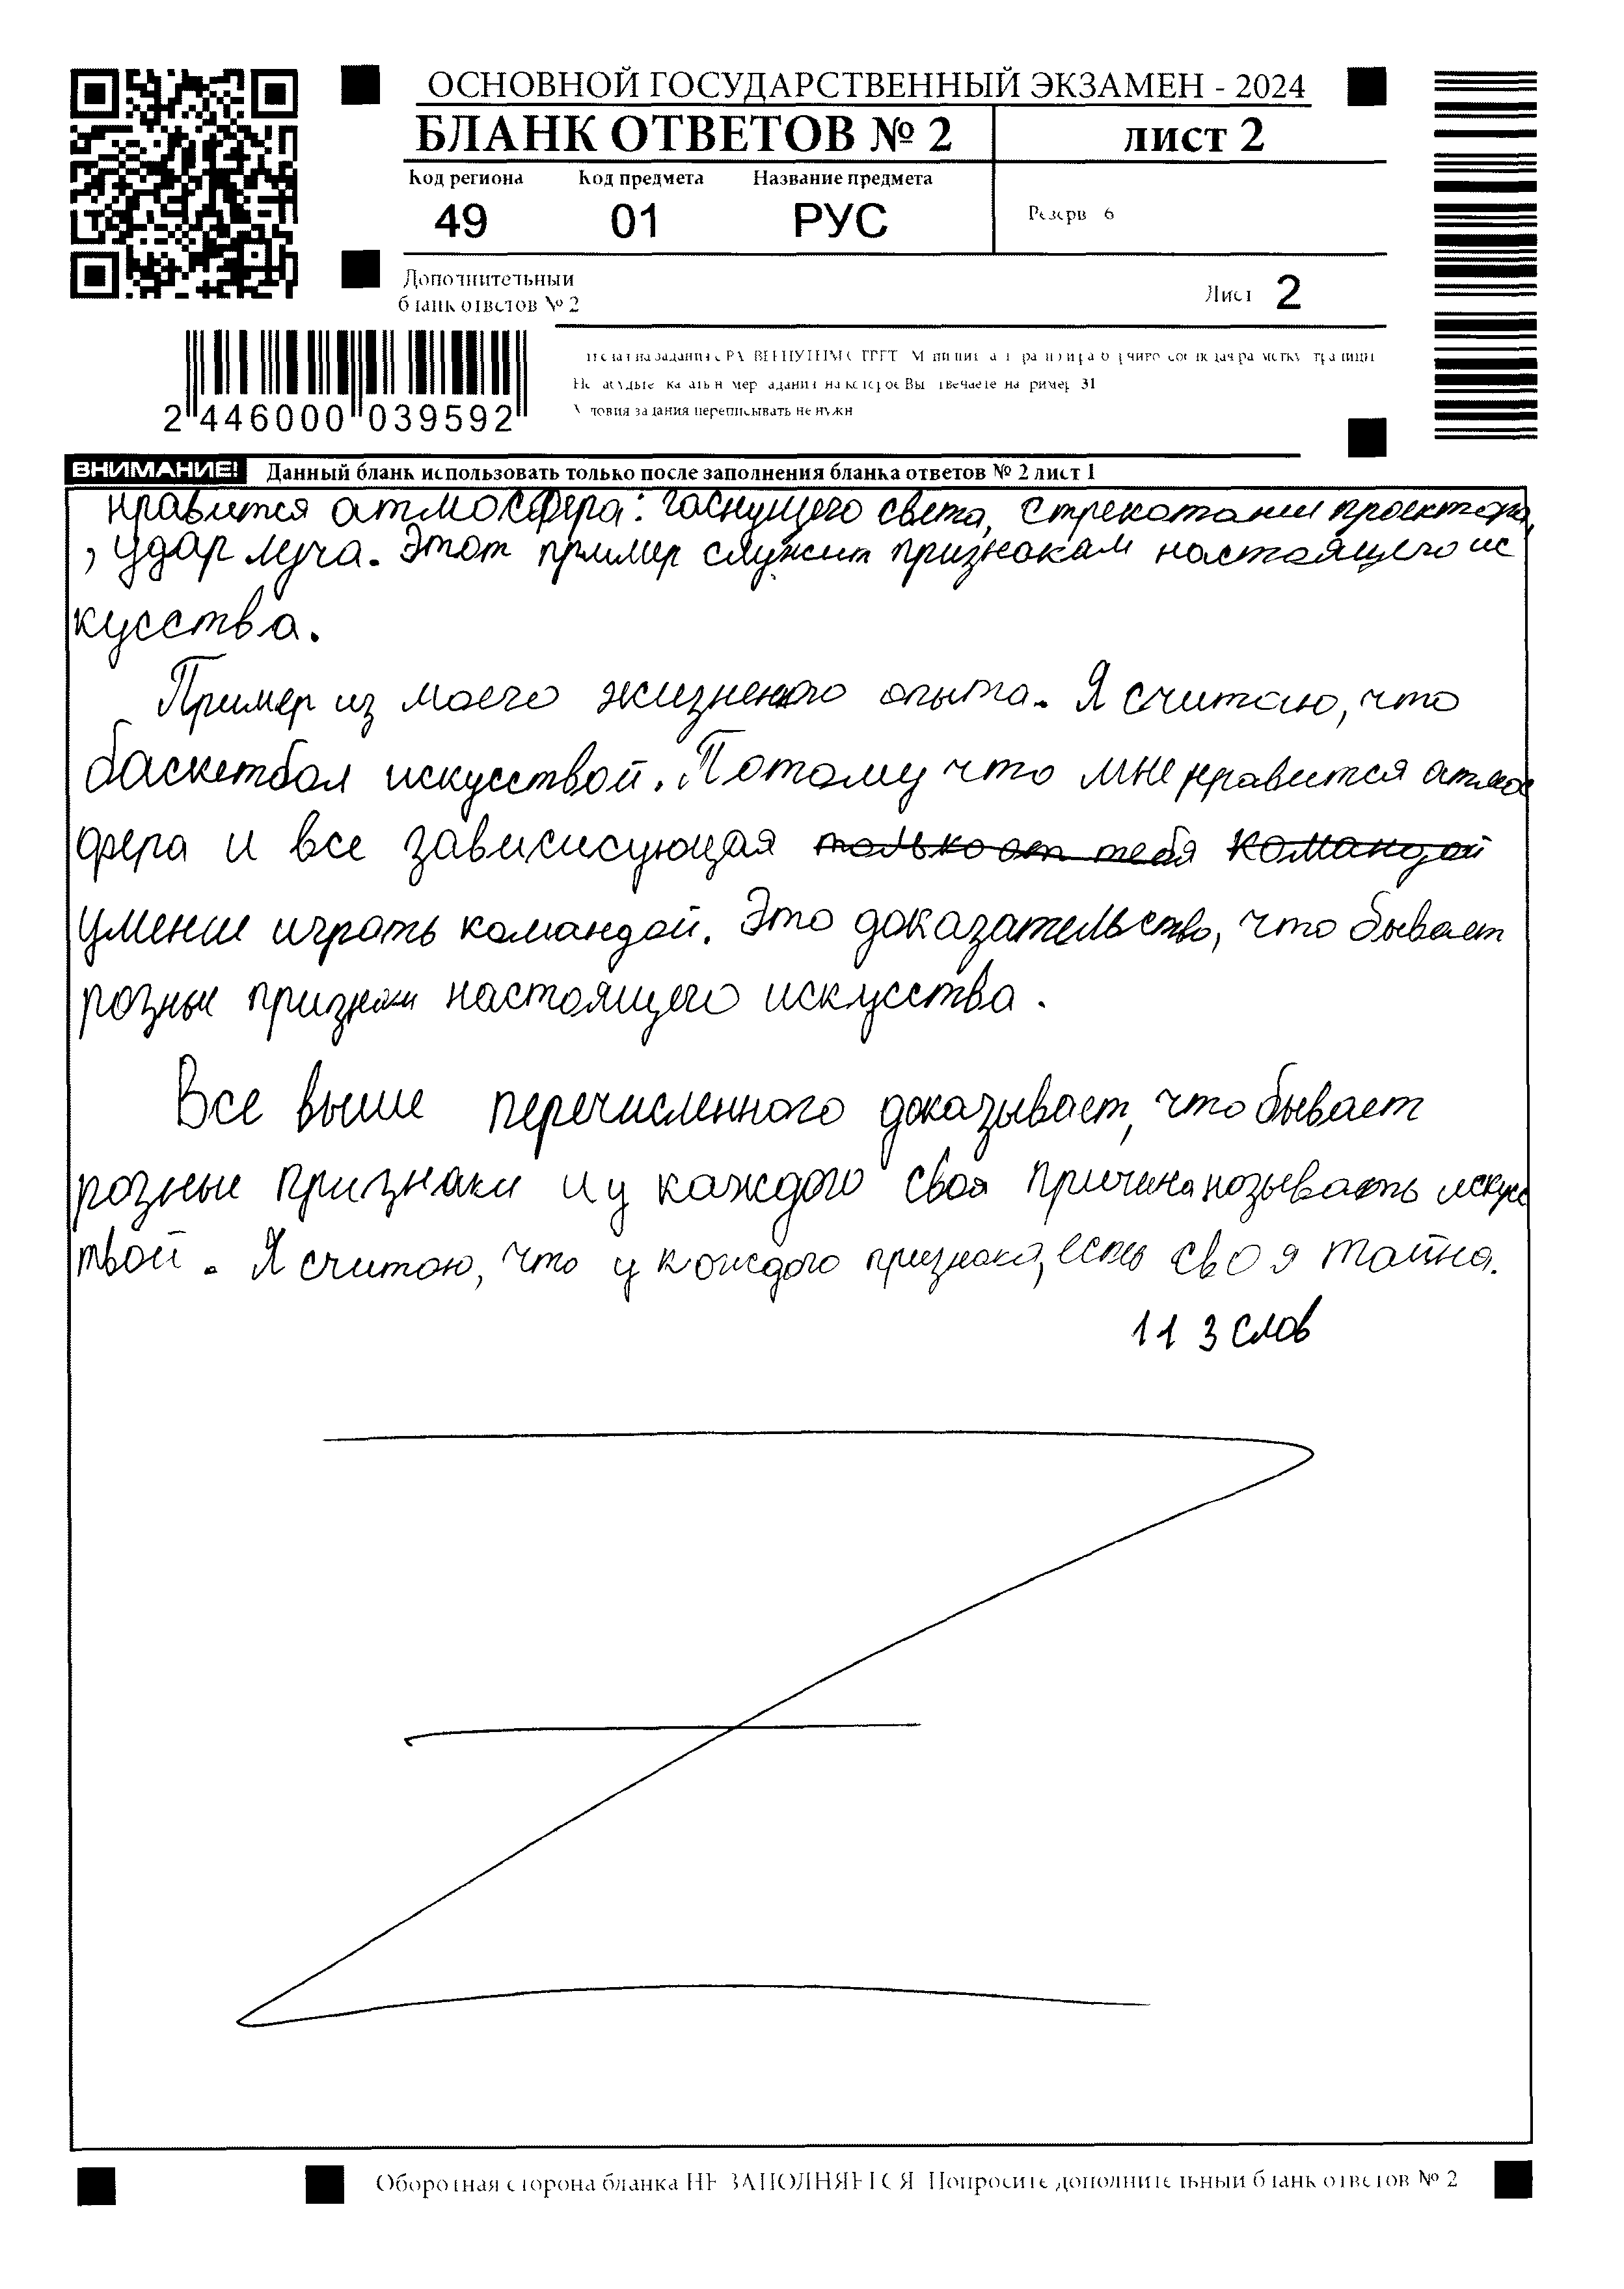 ОСНОВНОЙ ГОСУДАРСТВЕННЫЙ ЭКЗАМЕН - 2024
БЛАНК ОТВЕТОВ № 2
ЛИСТ 2
Код региона Код предмета Название предмета
49 01 РУС
Резерв 6
Дополнительный
бланк ответов № 2
Лист 2
2 446000 039592
Условия задания переписывать не нужн
ВНИМАНИЕ! Данный бланк использовать только после заполнения бланка ответов № 2 лист 1
нравится атмосфера: гаснущего света, стрекотании проектора,
, удар луча. Этот пример служит признакам настоящего ис
кусства.
Пример из моего жизненого опыта. Я считаю, что
баскетбол искусствой. Потому что мне нравится атмос
фера и все зависисующая только от тебя командой
умении играть командой. Это доказательство, что бывает
розные признаки настоящего искусства.
Все выше перечисленного доказывает, что бывает
розные признаки и у каждого своя причина называть искусс
твой. Я считаю, что у каждого признака, есть своя тайна.
113 слов
Оборотная сторона бланка НЕ ЗАПОЛНЯЕТСЯ Попросите дополнительный бланк ответов № 2